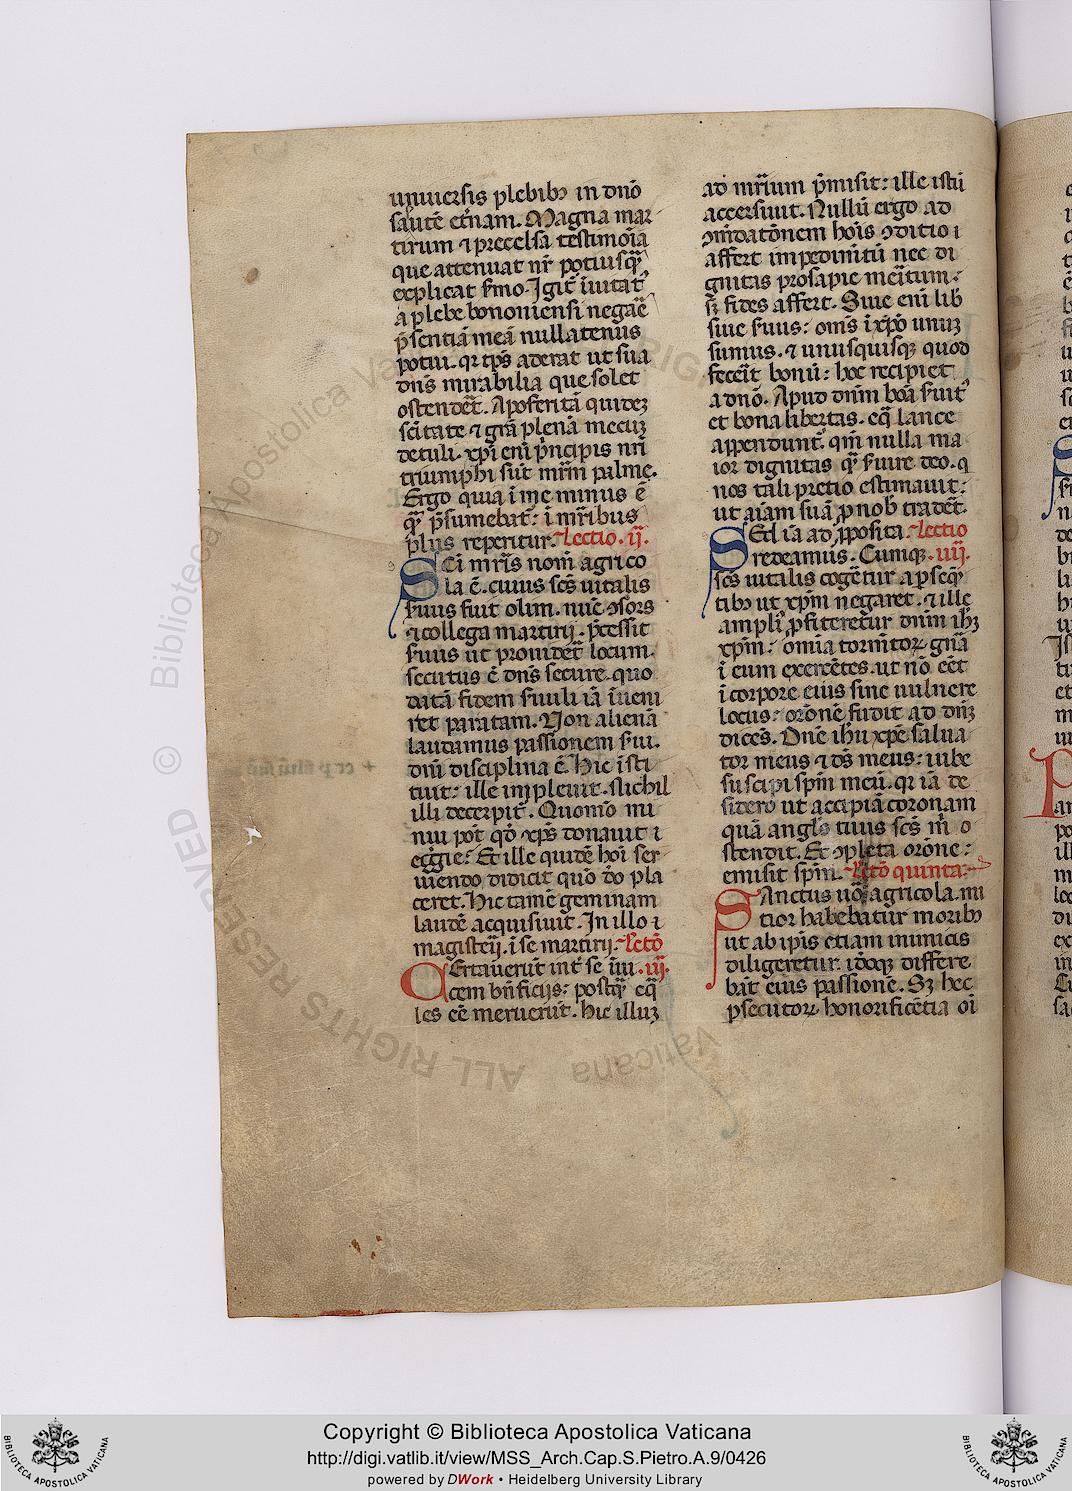 uniuersis plebibꝫ in dn̄o
salutē et̄nam. Magna mar
tirum ⁊ precelsa testimōia
que attenuat nr̄ potiusqͣꝫ
explicat s̄mo. Igit̄ īuitat᷑
a plebe bononiensi negaē
p̄sentiā meā nullatenus
potui. qꝛ tp̄s aderat ut sua
dn̄s mirabilia que solet
ostendēt. Apoferitā quidēꝫ
scītate ⁊ grā plenā mecuꝫ
detuli. xp̄i eni p̄ncipis nr̄i
triumphi sūt mr̄m palme.
Ergo quia ī me minus ē
qͣꝫ p̄sumebat᷑: ī mr̄ibus
plus reperitur. Lectio .ij.
Sci mr̄is nom̄ agrico
la ē. cuius scs̄ uitalis
s̄uus fuit olim. nūc ꝯsors
⁊ collega martirij. p̄cessit
s̄uus ut prouidēt locum.
secutus ē dn̄s secure. quo
datā fidem s̄uuli iā īueni
ret paratam. Non alienā
laudamus passionem s̄ui.
dn̄i disciplina ē. Hic īsti
tuit: ille impleuit. Nichil
illi decerpit᷑. Quomō mi
nui pōt qd̄ xp̄s donauit ī
eggie: Et ille quidē hoī ser
uiendo didicit quō dō pla
ceret. Hic tamē geminam
laudē acquisiuit. In illo ī
magisterij. ī se martirij. Lectō
Certauerūt int̄ se īui .iij.
cem bn̄ficijs: postqͣꝫ eqͣ
les eē meruerūt. hic illuꝫ
ad mr̄ium p̄misit: ille istū
accersiuit. Nullū ergo ad
ꝯm̄datōnem hoīs ꝯditio ī
affert impedim̄tū nec di
gnitas prosapie mer̄itum:
sꝫ fides affert. Siue eni lib̄
siue s̄uus: om̄s ī xp̄o unuꝫ
sumus. ⁊ unusquisqꝫ quod
fecēit bonū: hoc recipiet
a dn̄o. Apud dn̄m boā s̄uit᷑
et bona libertas. eqͣ lance
appendunt᷑. qm̄ nulla ma
ior dignitas qͣꝫ s̄uire deo. q
nos tali pretio estimauit:
ut aīam suā p̱ nob̄ tradēt.
Sed iā ad p̱posita Lectio
redeamus. Cumqꝫ .iiij.
scs̄ uitalis cogētur a p̱seqͣ
tibꝫ ut xp̄m negaret. ⁊ ille
ampli᷒ p̱fiteretur dn̄m ih̄ꝫ
xp̄m: omīa torm̄torꝝ gn̄a
ī eum exercētes. ut nō eēt
ī corpore eius sine uulnere
locus: orōnē fudit ad dn̄ꝫ
dicēs. Dn̄e ih̄u xp̄e salua
tor meus ⁊ ds̄ meus: iube
suscipi sp̄m meū. qꝛ iā de
sidero ut accipiā coronam
quā angl̄s tuus scs̄ m̄ o
stendit. Et ꝯpleta orōne:
emisit sp̄m. Lectō quinta.
Sanctus uō agricola. mi
tior habebatur moribꝫ
ut ab ip̄is etiam inimicis
diligeretur. īdeoqꝫ differe
bāt eius passionē. Sꝫ hec
p̱secutorꝝ honorificētia oī
Copyright © Biblioteca Apostolica Vaticana
http://digi.vatlib.it/view/MSS_Arch.Cap.S.Pietro.A.9/0426
powered by DWork • Heidelberg University Library